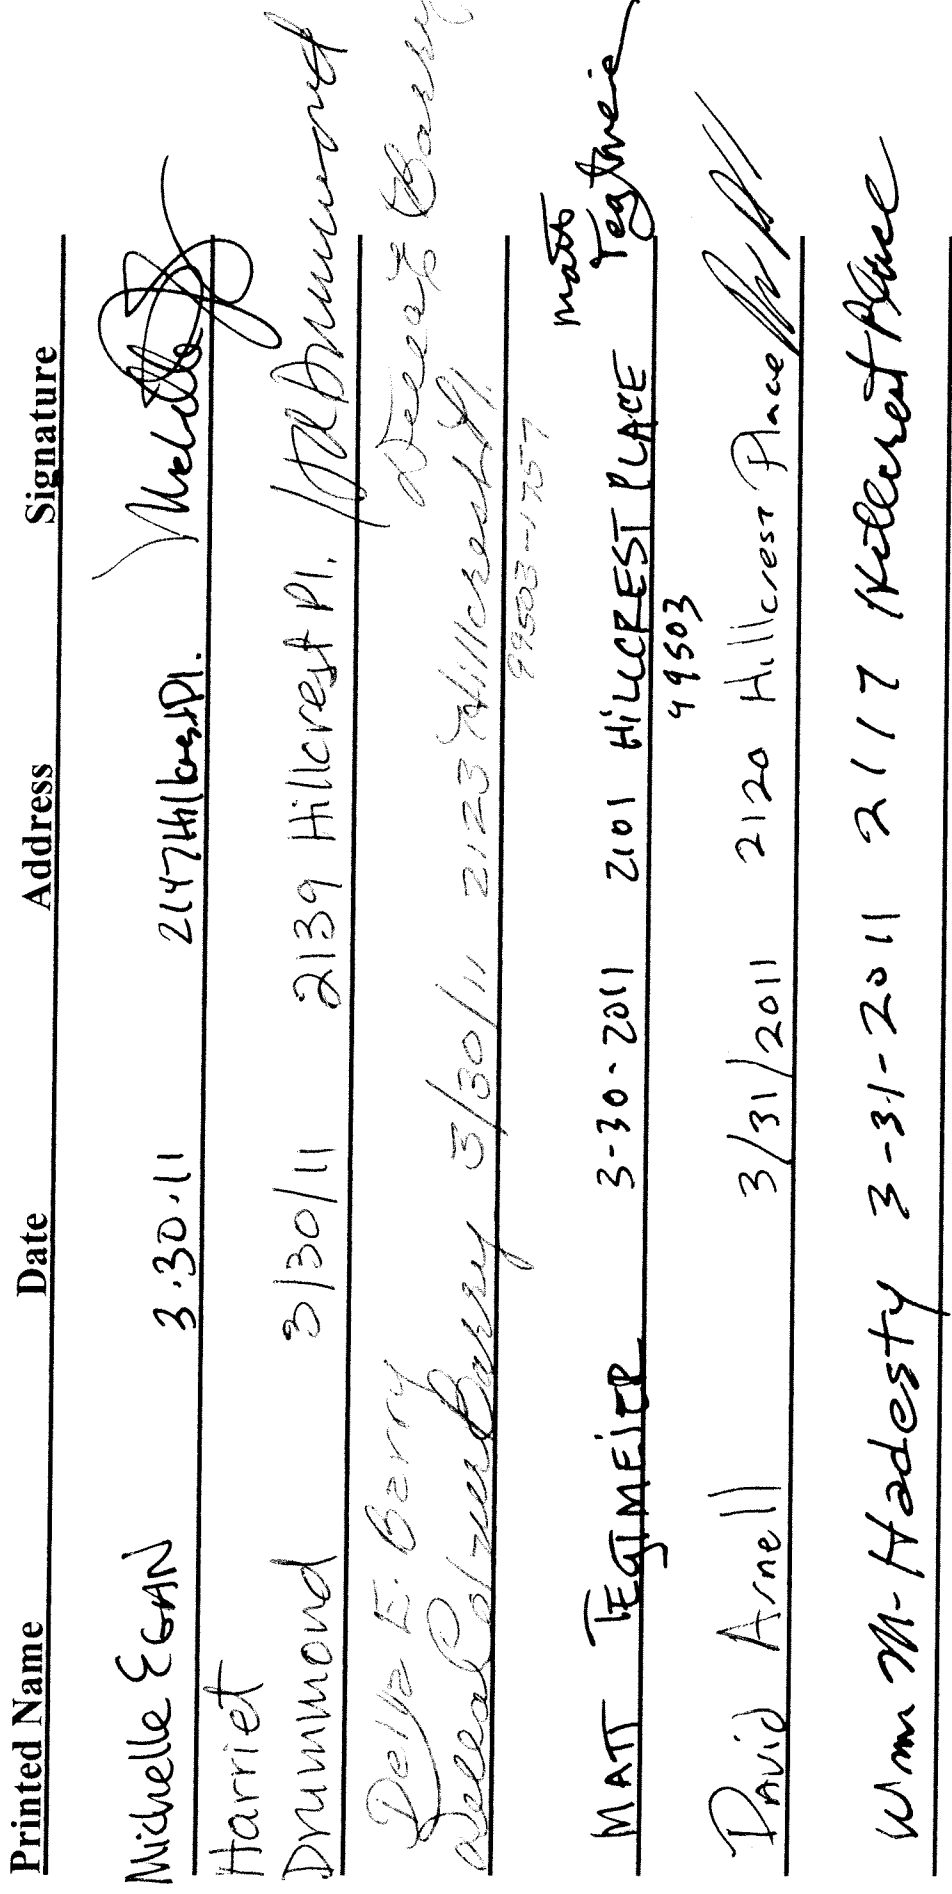 Printed Name Date Address Signature
Michelle EGAN 3.30.11 2147 Hillcrest Pl. Michelle
Harriet
Drummond 3/30/11 2139 Hillcrest Pl. H Drummond
Della E. Barry Della E Barry
Della Barry 3/30/11 2123 Hillcrest Pl.
99503-1757
Matt
MATT TEGTMEIER 3-30-2011 2101 HILLCREST PLACE Tegtmeie
99503
David Arnell 3/31/2011 2120 Hillcrest Place
Wm M. Hadesty 3-31-2011 2117 Hillcrest Place